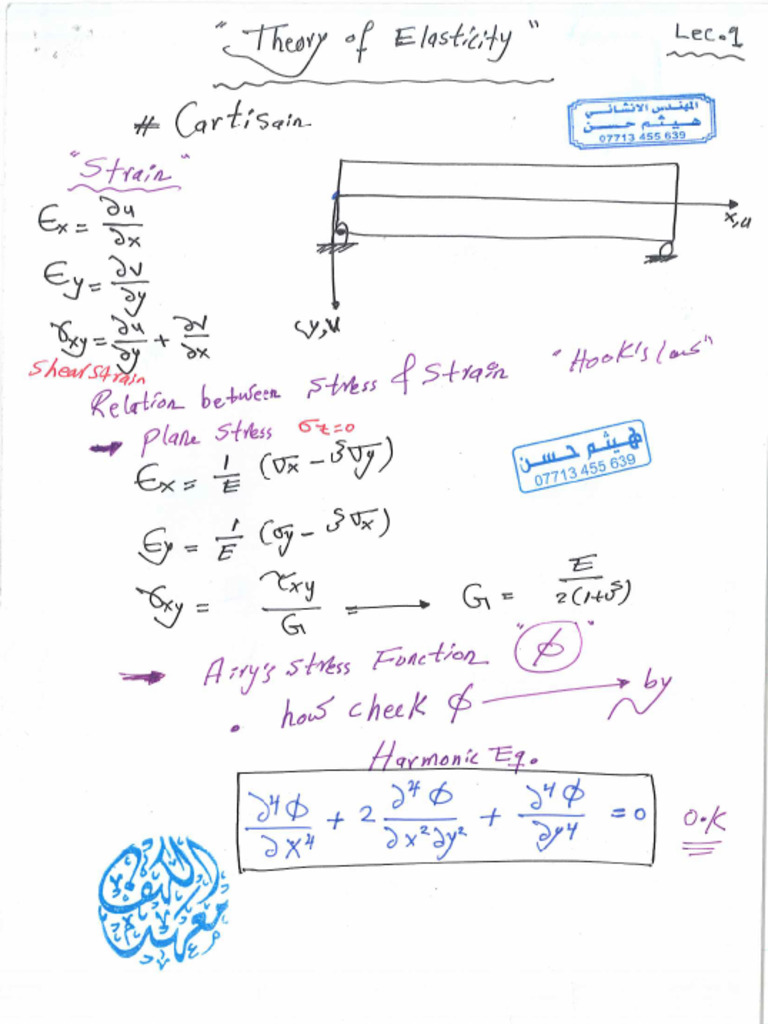 " Theory of Elasticity "
Lec.1
# Cartisain
المهندس الانشائي
هيثم حسن
07713 455 639
"Strain"
x,u
y,v
ϵx = ∂u/∂x
ϵy = ∂v/∂y
γxy = ∂u/∂y + ∂v/∂x
Shear strain
Relation between stress & strain "Hook's law"
→ plane stress σz=0
هيثم حسن
07713 455 639
ϵx = 1/E (σx - υσy)
ϵy = 1/E (σy - υσx)
γxy = τxy/G → G = E/2(1+υ)
→ Airy's stress Function "ϕ"
• how check ϕ → by
Harmonic Eq.
∂⁴ϕ/∂x⁴ + 2 ∂⁴ϕ/∂x²∂y² + ∂⁴ϕ/∂y⁴ = 0
O.K